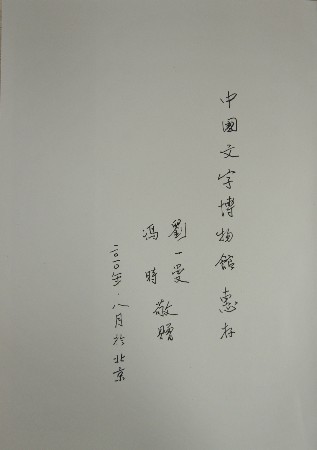 中國文字博物館惠存
劉一曼
馮時敬贈
二〇一〇年.八月於北京